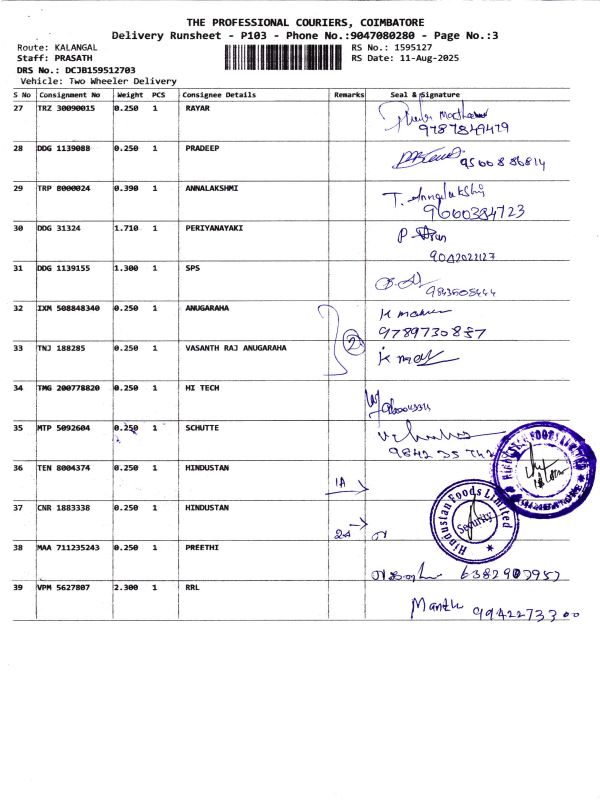 THE PROFESSIONAL COURIERS, COIMBATORE
Delivery Runsheet - P103 - Phone No.:9047080280 - Page No.:3
Route: KALANGAL RS No.: 1595127
Staff: PRASATH RS Date: 11-Aug-2025
DRS No.: DCJB159512703
Vehicle: Two Wheeler Delivery
S No Consignment No Weight PCS Consignee Details Remarks Seal & Signature
27 TRZ 30090015 0.250 1 RAYAR
9787849479
28 DDG 1139088 0.250 1 PRADEEP
9500886814
29 TRP 8000024 0.390 1 ANNALAKSHMI T. Annalakshi
9600384723
30 DDG 31324 1.710 1 PERIYANAYAKI
9042022127
31 DDG 1139155 1.300 1 SPS
32 IXM 508848340 0.250 1 ANUGARAHA
9789730857
33 TNJ 188285 0.250 1 VASANTH RAJ ANUGARAHA 2
34 TMG 200778820 0.250 1 HI TECH
35 MTP 5092604 0.250 1 SCHUTTE
HINDUSTAN FOODS LIMITED
36 TEN 8004374 0.250 1 HINDUSTAN 1A
37 CNR 1883338 0.250 1 HINDUSTAN 2A
Hindustan Foods Limited
Security
38 MAA 711235243 0.250 1 PREETHI
6382907957
39 VPM 5627807 2.300 1 RRL
9942273300